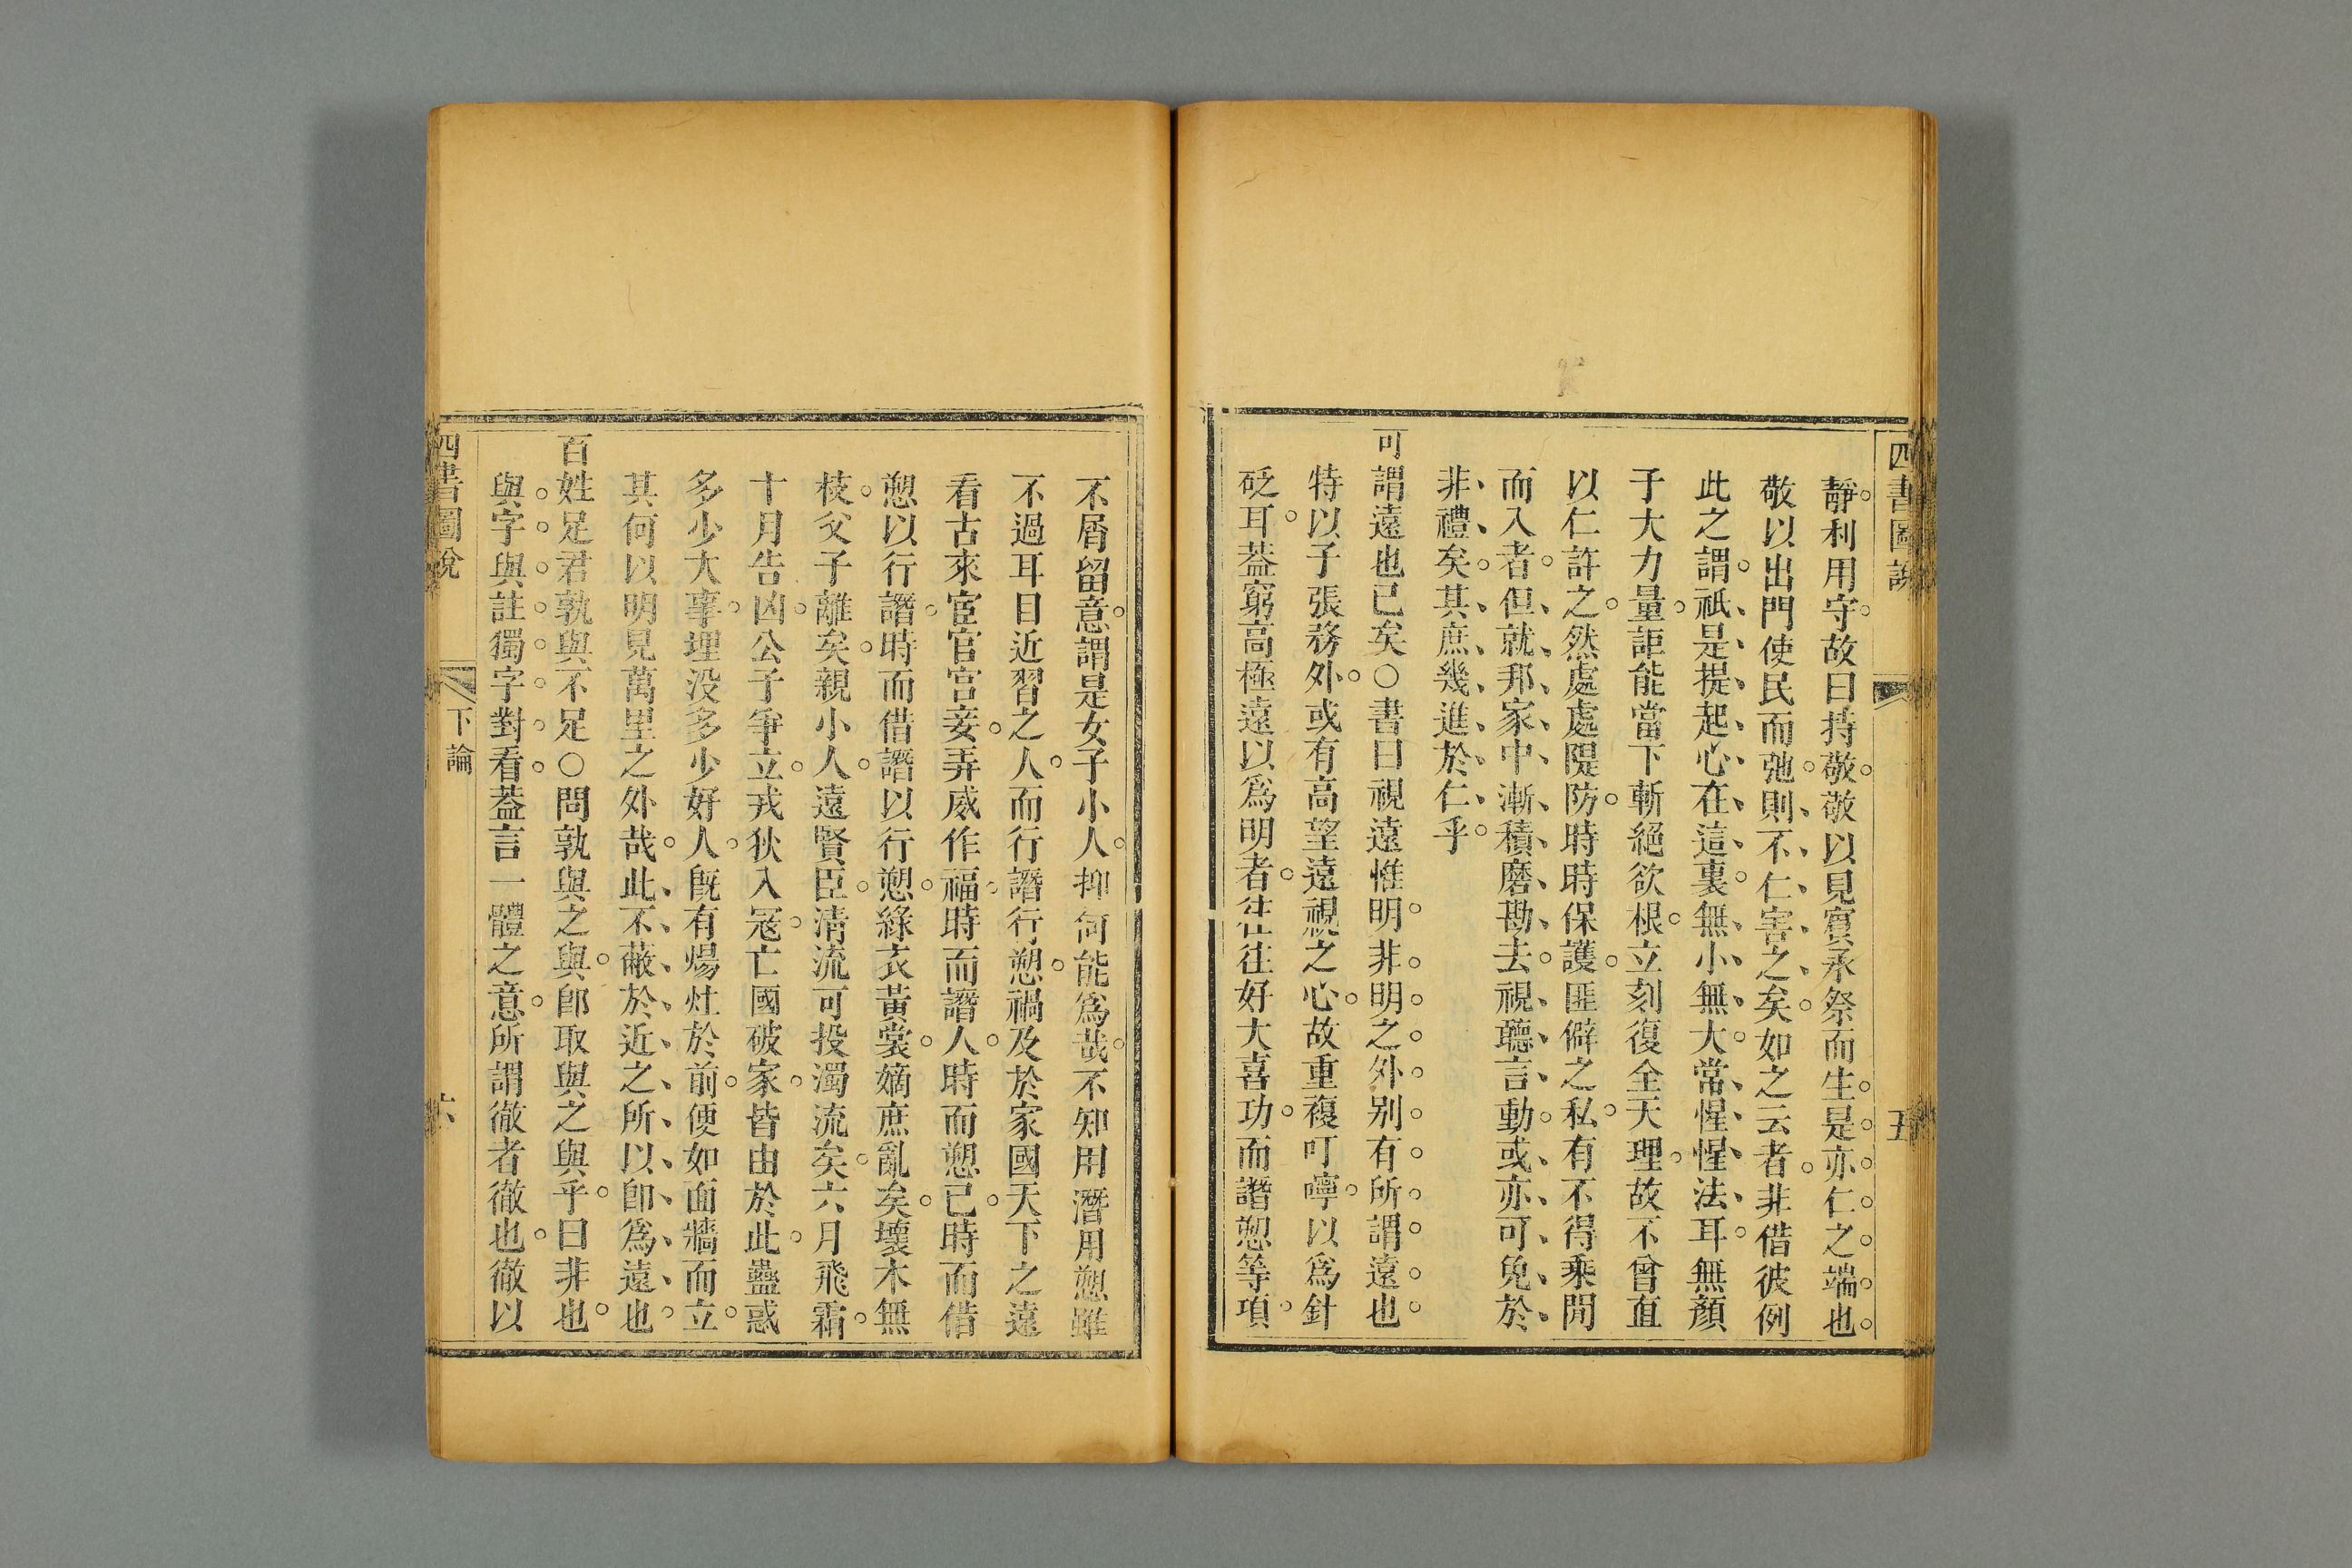 四書圖說
五
靜利用守故曰持敬敬以見賓承祭而生是亦仁之端也
敬以出門使民而弛則不仁害之矣如之云者非借彼例
此之謂祇是提起心在這裏無小無大常惺惺法耳無顏
子大力量詎能當下斬絕欲根立刻復全天理故不曾直
以仁許之然處處隄防時時保護匪僻之私有不得乘閒
而入者但就邦家中漸積磨勘去視聽言動或亦可免於
非禮矣其庶幾進於仁乎
可謂遠也已矣○書曰視遠惟明非明之外别有所謂遠也
特以子張務外或有高望遠視之心故重複叮嚀以爲針
砭耳葢窮高極遠以爲明者往往好大喜功而譖愬等項
不屑留意謂是女子小人抑何能爲哉不知用潛用愬雖
不過耳目近習之人而行譖行愬禍及於家國天下之遠
看古來宦官宮妾弄威作福時而譖人時而愬己時而借
愬以行譖時而借譖以行愬綠衣黃裳嫡庶亂矣壞木無
枝父子離矣親小人遠賢臣清流可投濁流矣六月飛霜
十月告凶公子爭立戎狄入冦亡國破家皆由於此蠱惑
多少大事埋没多少好人旣有煬灶於前便如面牆而立
其何以明見萬里之外哉此不蔽於近之所以卽爲遠也
百姓足君孰與不足○問孰與之與卽取與之與乎曰非也
與字與註獨字對看葢言一體之意所謂徹者徹也徹以
四書圖說
下論
六